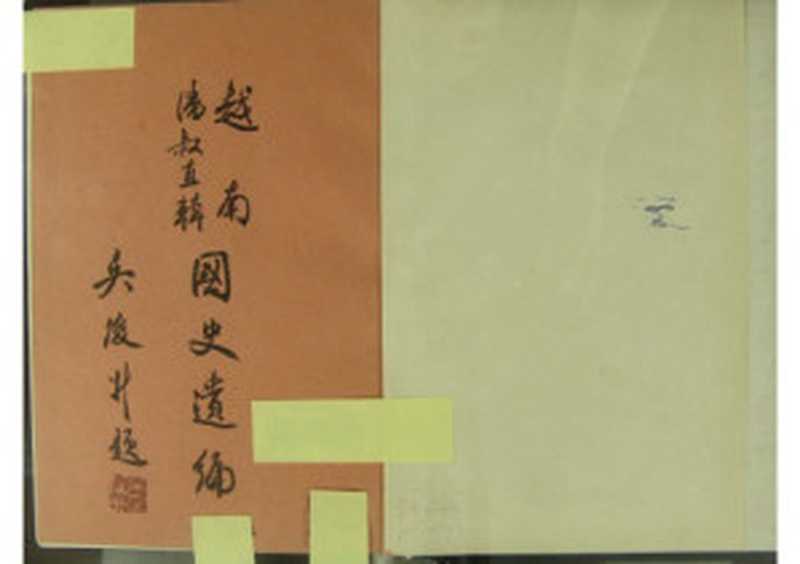 越南
潘叔直輯
國史遺編
吳俊升題